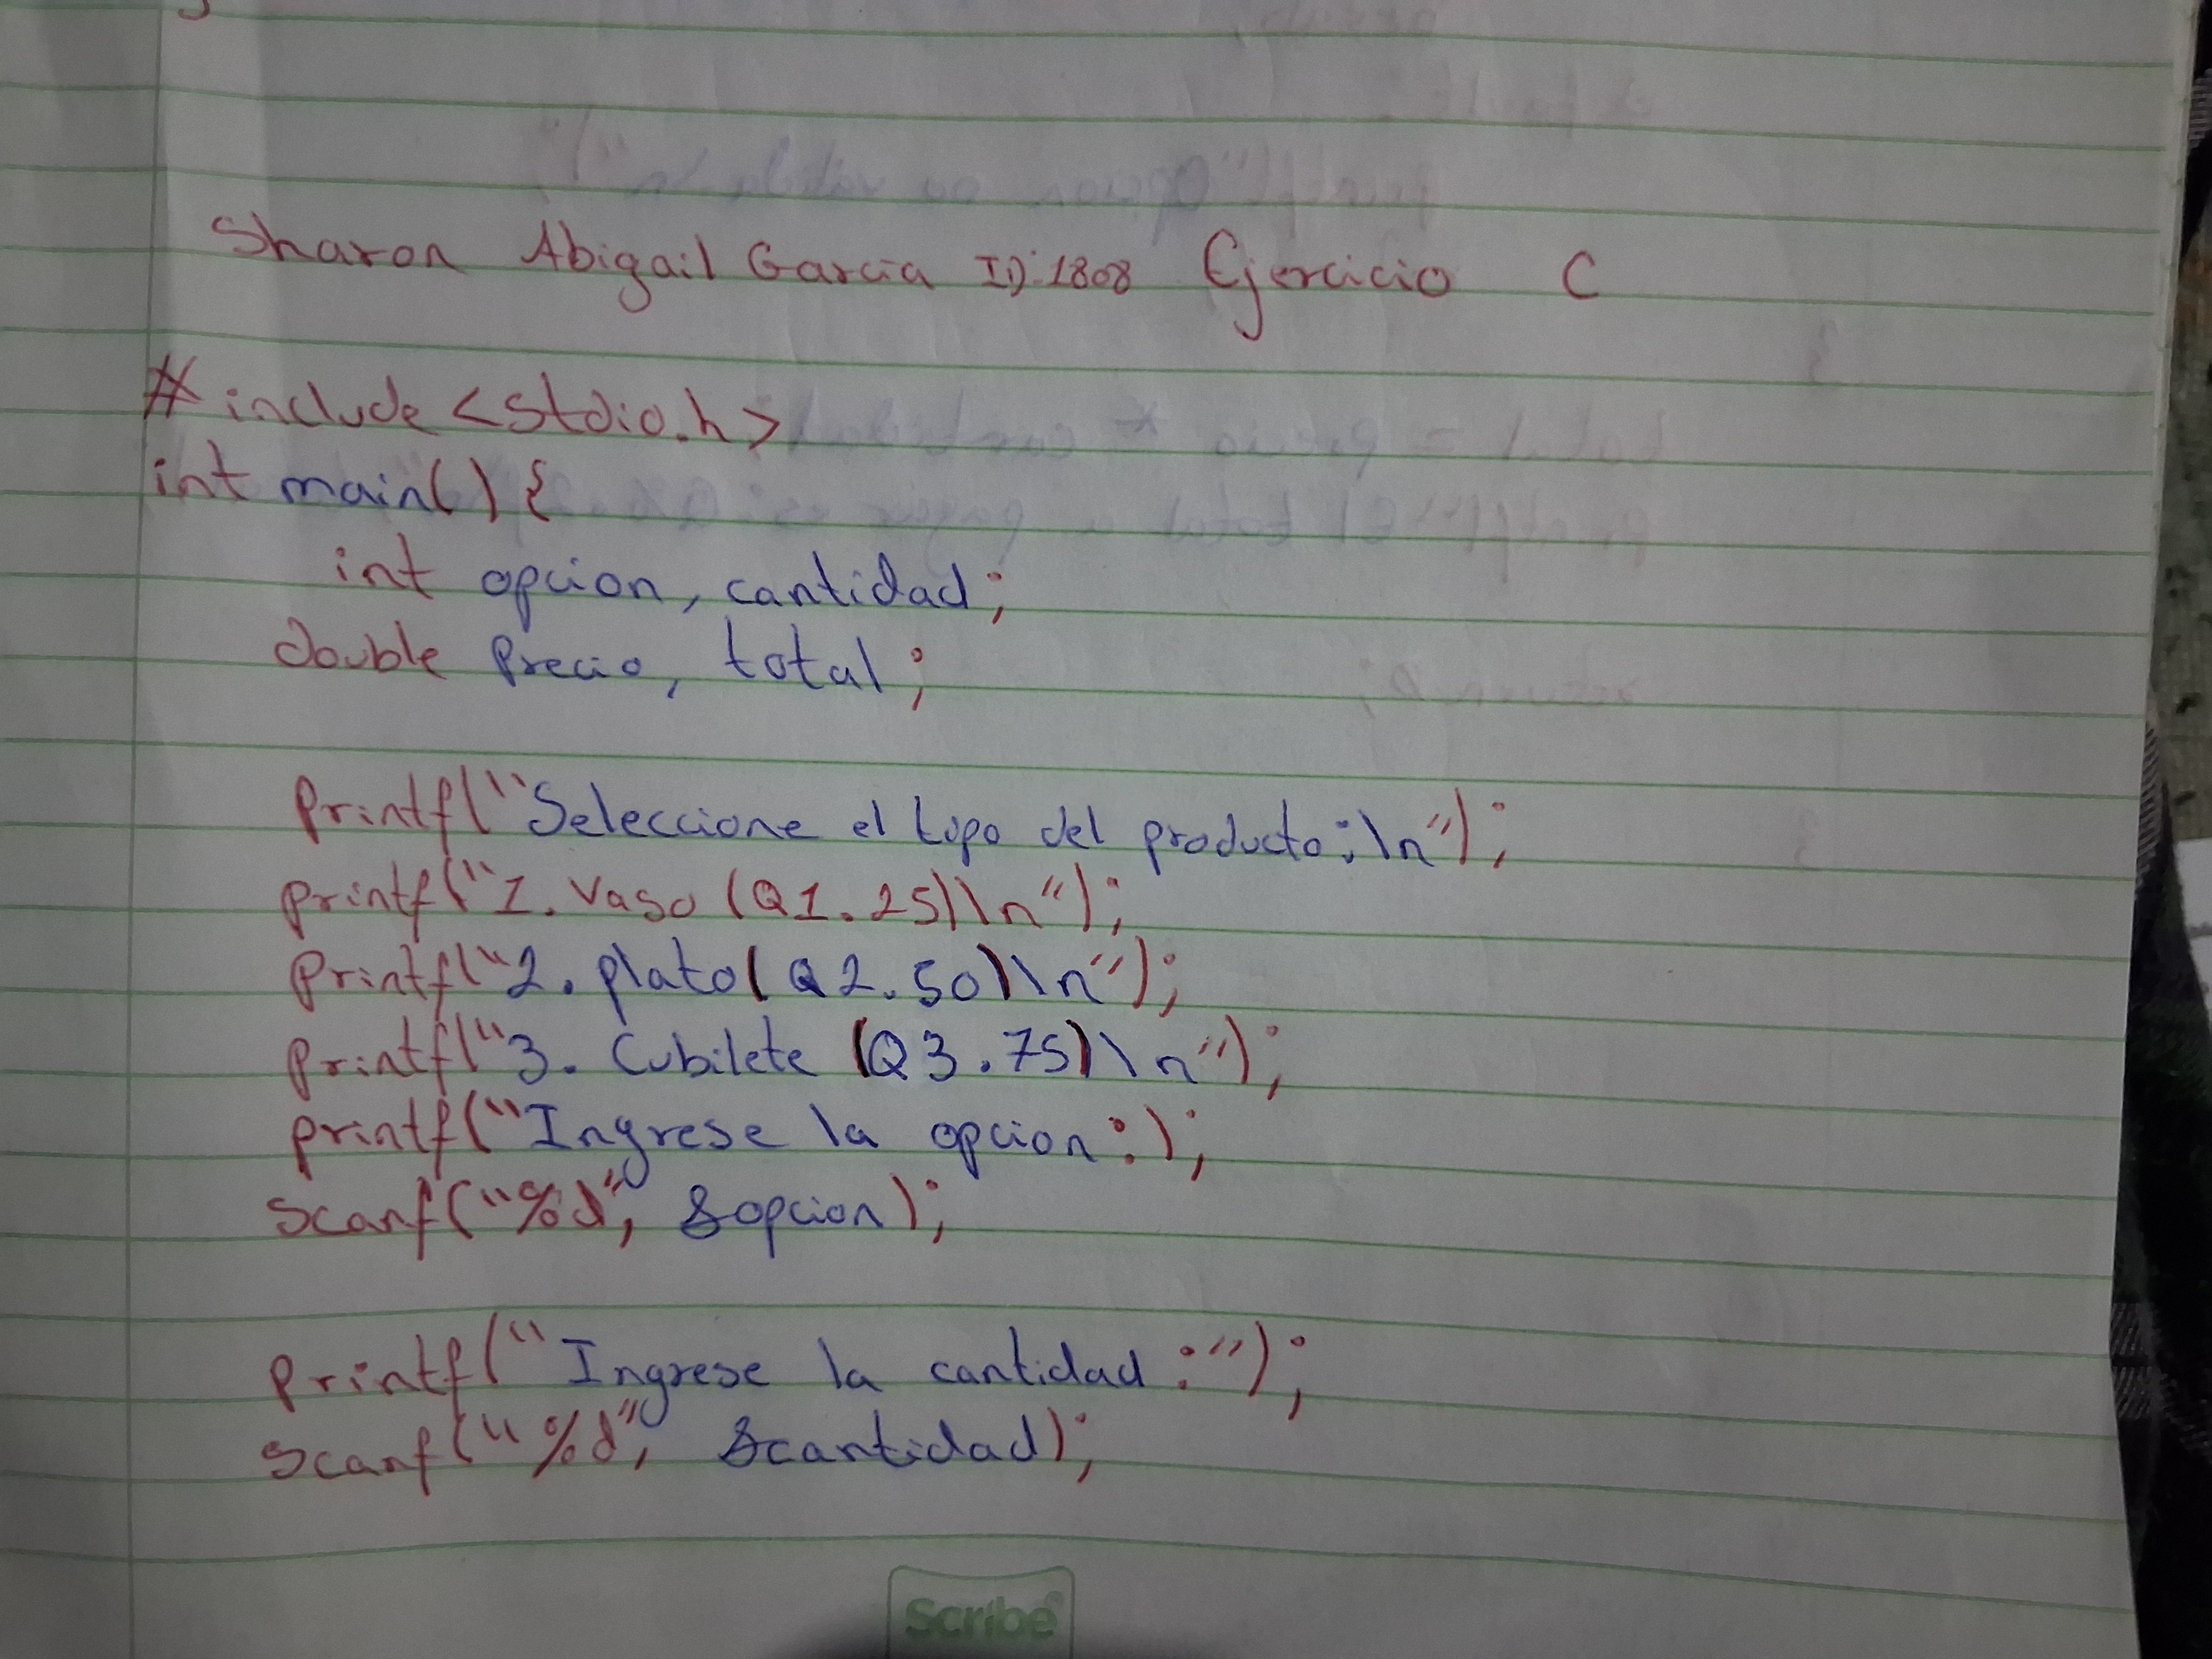 Sharon Abigail Garcia ID:1808 Ejercicio C
#include <stdio.h>
int main() {
int opcion, cantidad;
double precio, total;
printf("Seleccione el tipo del producto:\n");
printf("1. Vaso (Q1.25)\n");
printf("2. plato (Q2.50)\n");
printf("3. Cubilete (Q3.75)\n");
printf("Ingrese la opcion:);
scanf("%d", &opcion);
printf("Ingrese la cantidad:");
scanf("%d", &cantidad);
Scribe